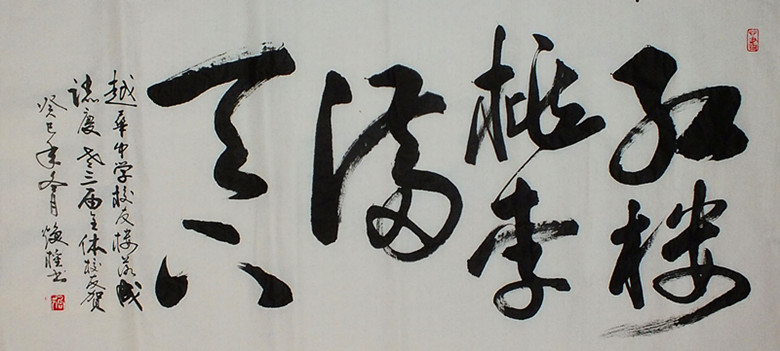 红楼
桃李
满
天下
越華中学校友楼落成
誌庆 老三届全体校友贺
癸巳年冬月 焕 书